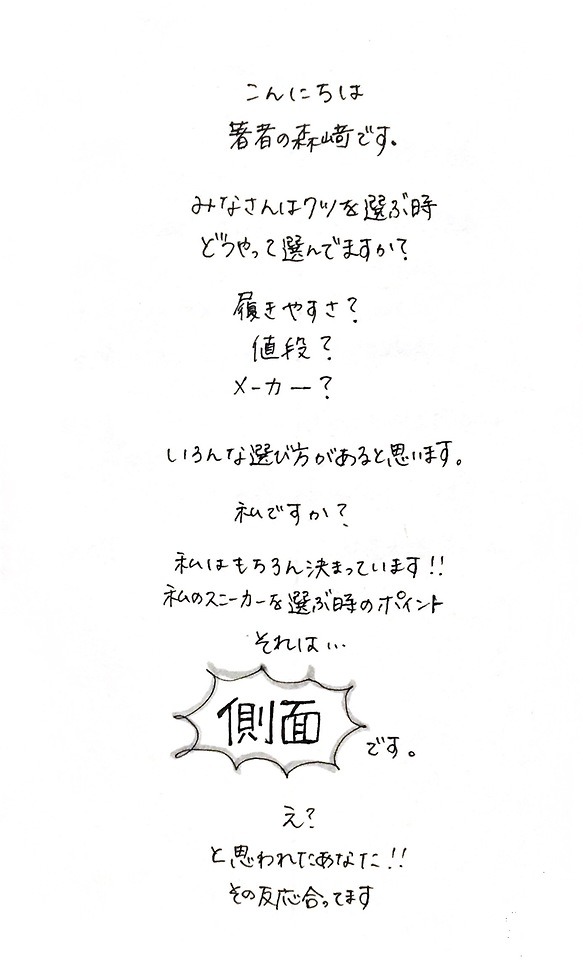 こんにちは
著者の森﨑です。
みなさんはクツを選ぶ時
どうやって選んでますか?
履きやすさ?
値段?
メーカー?
いろんな選び方があると思います。
私ですか?
私はもちろん決まっています!!
私のスニーカーを選ぶ時のポイント
それは…
側面です。
え?
と思われたあなた!!
その反応合ってます